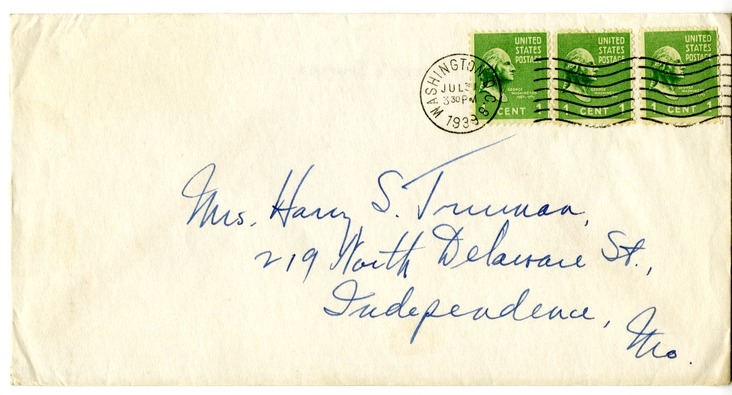 UNITED STATES POSTAGE UNITED STATES POSTAGE UNITED STATES POSTAGE
WASHINGTON, D.C. 8
JUL
3 30 PM
1939
GEORGE WASHINGTON GEORGE WASHINGTON
CENT 1 1 CENT 1 1 CENT 1
Mrs. Harry S. Truman,
219 North Delaware St.,
Independence,
Mo.